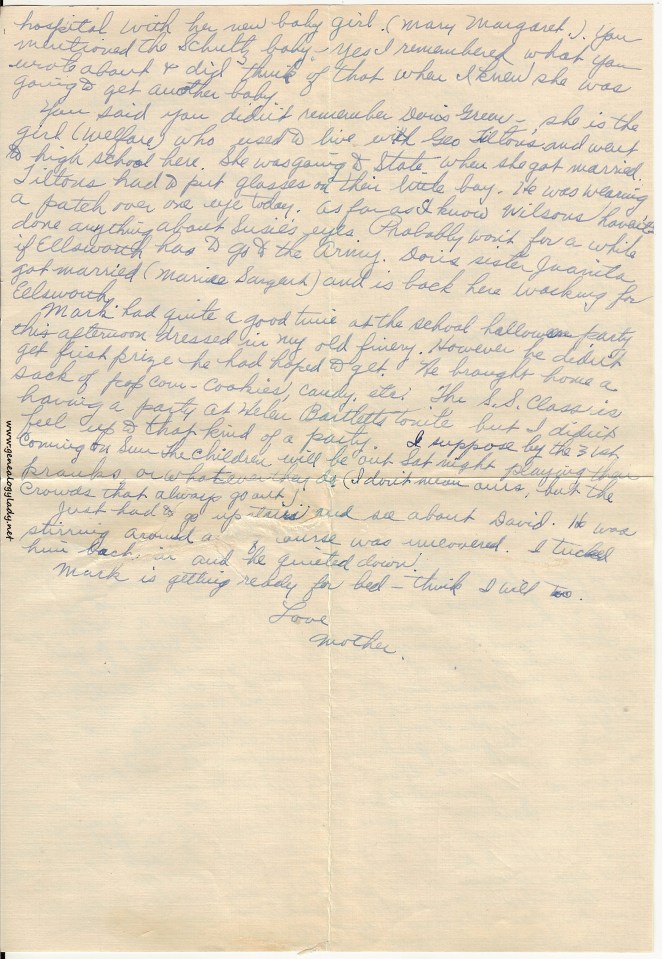 hospital with her new baby girl. (Mary Margaret.). You
mentioned the Schultz baby – Yes I remembered what you
wrote about & did "think" of that when I knew she was
going to get another baby.
You said you didn't remember Doris Green –, she is the
girl (Welfare) who used to live with Geo Tiltons and went
to high school here. She was going to State when she got married.
Tiltons had to put glasses on their little boy. He was wearing
a patch over one eye today. As far as I know Wilsons haven't
done anything about Susie's eyes. Probably won't for a while
if Ellsworth has to go to the Army. Doris sister Juanita
got married (Sargent) and is back here working for
Ellsworth.
Mark had quite a good time at the school halloween party
this afternoon dressed in my old finery. However he didn't
get first prize he had hoped to get. He brought home a
sack of pop corn – cookies, candy, etc. The S.S. Class is
having a party at Helen Bartletts tonite but I didn't
feel up to that kind of a party. I suppose by the 31st
coming on Sun. the children will be out Sat night playing their
pranks or whatever they do (I don't mean ours, but the
crowds that always go out).
Just had to go up stairs and see about David. He was
stirring around & course was uncovered. I tucked
him back in and he quieted down.
Mark is getting ready for bed – think I will too.
Love
Mother.
www.genealogylady.net